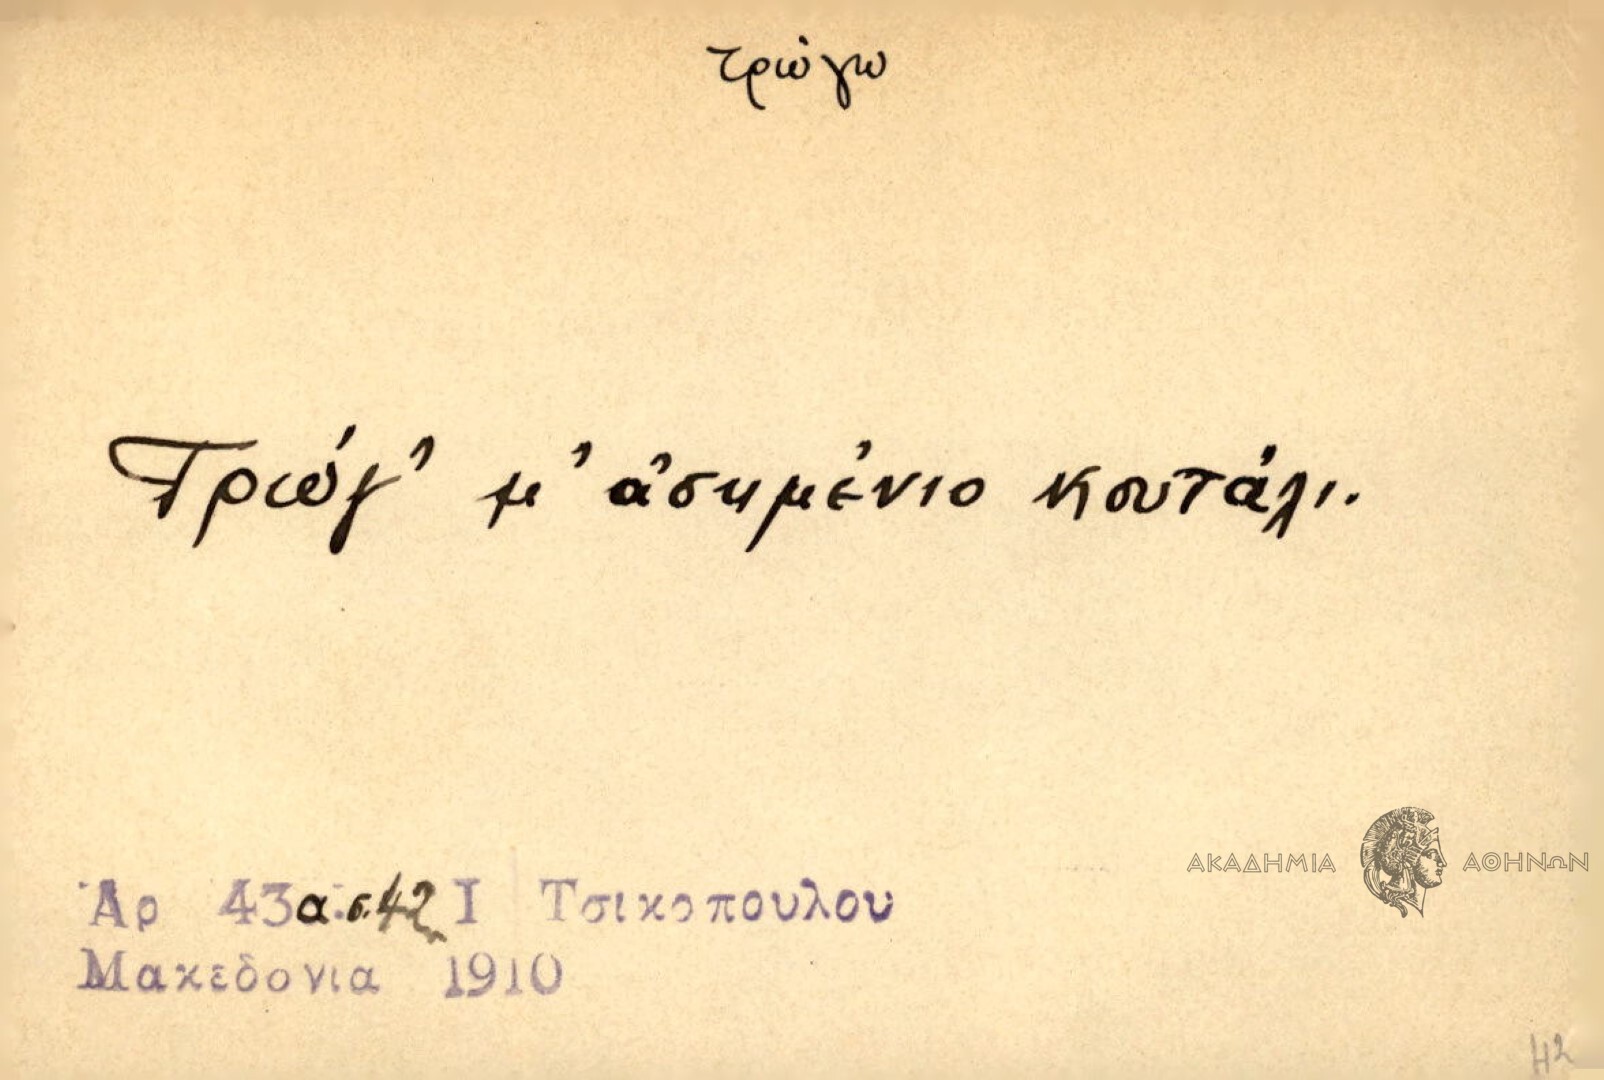 τρώγω
Τρώγ' μ' ἀσημένιο κουτάλι.
ΑΚΑΔΗΜΙΑ ΑΘΗΝΩΝ
Ἀρ 43α σ.42 Ι Τσικοπουλου
Μακεδονια 1910
42